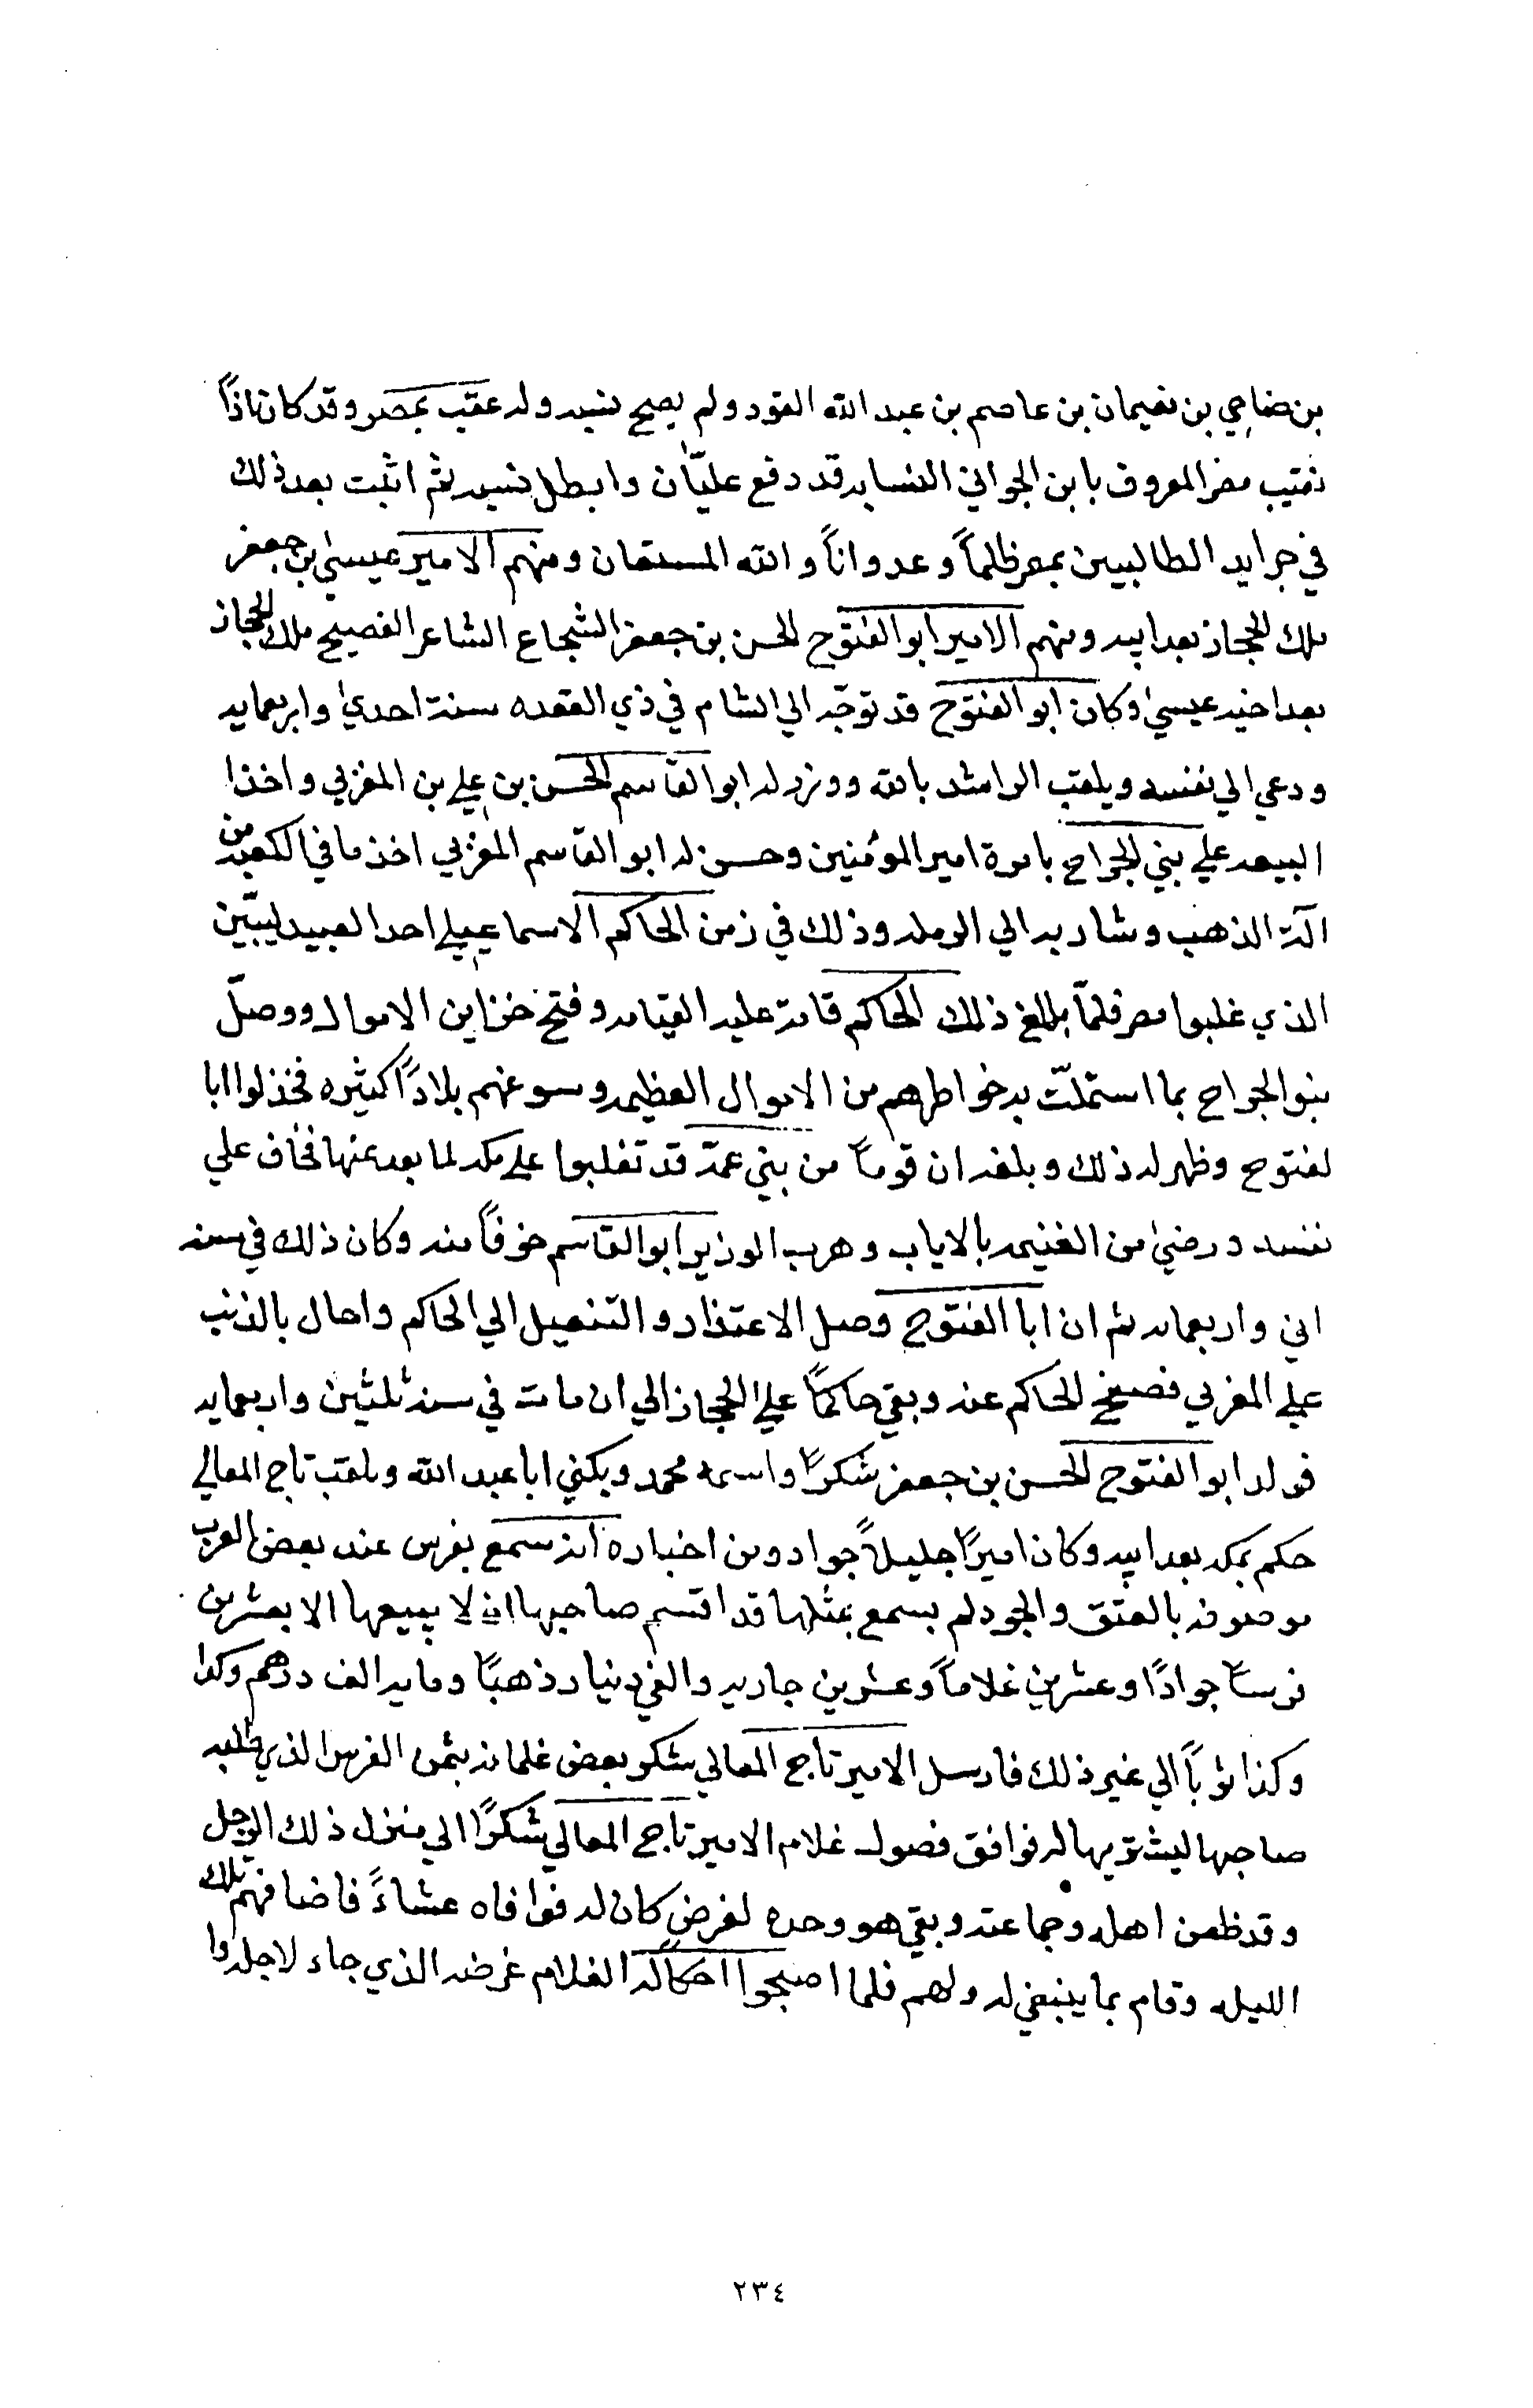 بن ضاحي بن نعيمان بن عاصم بن عبد الله القود ولم يصح نسبه وله عقب بمصر وقد كان
نقيب مصر المعروف بابن الجواني النسابه قد دفع عليّان وابطل نسبه ثم اثبت بعد ذلك
في جرايد الطالبيين بمصر ظلماً وعدواناً والله المستعان ومنهم الامير عيسىٰ بن جعفر
ملك الحجاز بعد ابيه ومنهم الامير ابو الفتوح الحسن بن جعفر الشجاع الشاعر الفصيح ملك الحجاز
بعد اخيه عيسىٰ وكان ابو الفتوح قد توجّه الي الشام في ذي القعده سنة احديٰ واربعمايه
ودعي الي نفسه ويلقب الراشد بالله ووزر له ابو القاسم الحسن بن علي بن المغربي واخذ
البيعه علي بني الجراح بامرة امير المؤمنين وحسن له ابو القاسم المغربي اخذ ما في الكعبه من
آلة الذهب وسار به الي الرمله وذلك في زمن الحاكم الاسماعيلي احد العبيدليين
الذي غلبوا مصر فلمّا بلغ ذلك الحاكم قامة عليه القيامه وفتح خزاين الاموال ووصلّ
بنو الجراح بما استملّت به خواطرهم من الاموال العظيمه وسوغهم بلاداً كثيره فخذلوا ابا
لفتوح وظهر له ذلك وبلغه ان قوماً من بني عمّه قد تغلبوا علي مكه لما بعد عنها فخاف علي
نفسه ورضيٰ من الغنيمه بالاياب وهرب الوزير ابو القاسم خوفاً منه وكان ذلك في سنه
اني واربعمايه ثم ان ابا الفتوح وصل الاعتذار والتنصيل الي الحاكم واحال بالذنب
علي المغربي فصفح الحاكم عنه وبقي حاكماً علي الحجاز الي ان مات في سنة ثلثين واربعمايه
فولد ابو الفتوح الحسن بن جعفر شكراً واسمه محمد ويكني ابا عبد الله ويلقب تاج المعالي
حكم بمكه بعد ابيه وكان اميراً جليلاً جواد ومن اخباره انه سمع بفرس عند بعض العرب
موصوفه بالعتق والجود لم يسمع بمثلها قد اقسم صاحبها ان لا يبيعها الا بعشرين
فرساً جواداً وعشرين غلاماً وعشرين جاريه والفي دينار ذهباً ومايه الف درهم وكذا
وكذا ثوباً الي غير ذلك فارسل الامير تاج المعالي شكر بعض غلمانه بثمن الفرس الذي طلبه
صاحبها ليشتريها له فوافق فصول غلام الامير تاج المعالي شكراً الي منزل ذلك الرجل
وقد ظعن اهله وجماعته وبقي هو وحده لغرض كان له فوافاه عشاءً فاضافهم تلك
الليله وقام بما ينبغي له ولهم فلما اصبحوا احكا له الغلام غرضه الذي جاء لاجله
٢٣٤